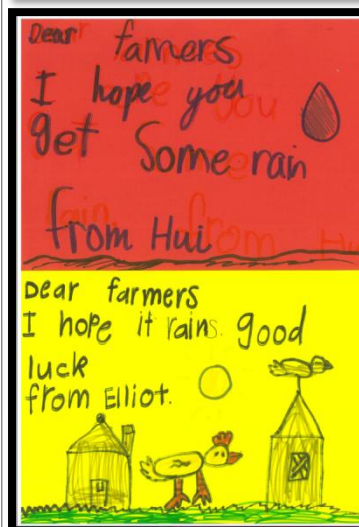 Dear famers
I hope you
get Some rain
from Hui
Dear farmers
I hope it rains good
luck
from Elliot.